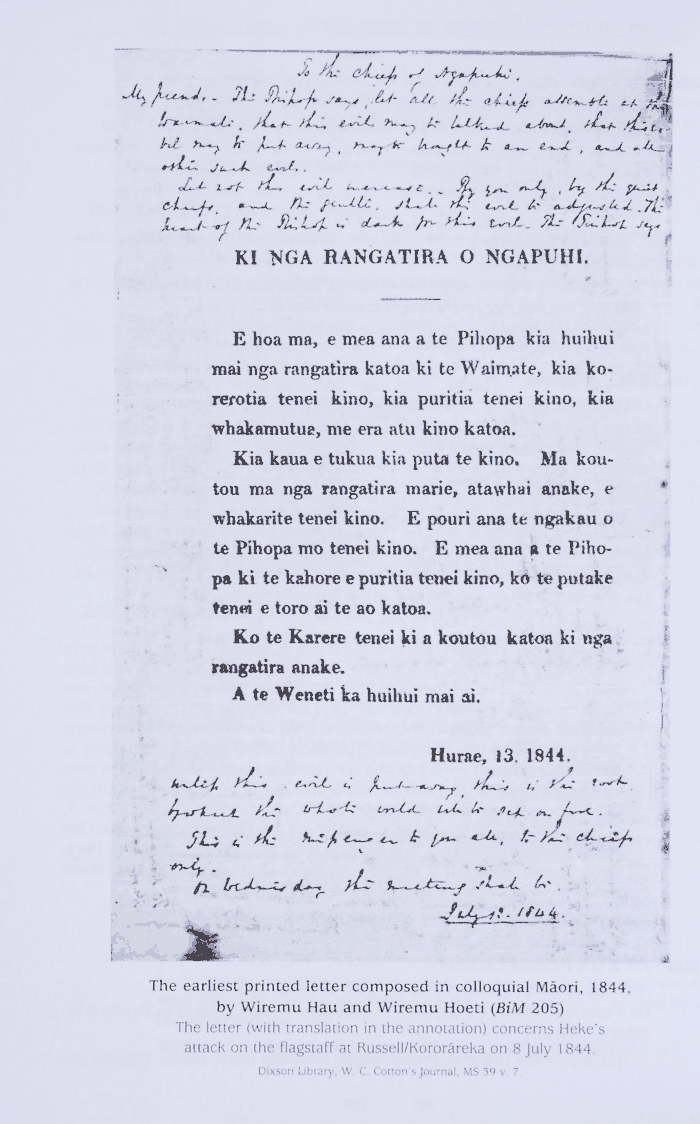 To the Chiefs of Ngapuhi.
My friends. - The Bishop says, let all the chiefs assemble at the
Waimate, that this evil may be talked about, that this e-
vil may be put away, may be brought to an end, and all
other such evils.
Let not this evil increase. - By you only, by the quiet
chiefs, and the gentle, shall this evil be adjusted. The
heart of the Bishop is dark for this evil. The Bishop says
KI NGA RANGATIRA O NGAPUHI.
E hoa ma, e mea ana a te Pihopa kia huihui
mai nga rangatira katoa ki te Waimate, kia ko-
rerotia tenei kino, kia puritia tenei kino, kia
whakamutua, me era atu kino katoa.
Kia kaua e tukua kia puta te kino. Ma kou-
tou ma nga rangatira marie, atawhai anake, e
whakarite tenei kino. E pouri ana te ngakau o
te Pihopa mo tenei kino. E mea ana a te Piho-
pa ki te kahore e puritia tenei kino, ko te putake
tenei e toro ai te ao katoa.
Ko te Karere tenei ki a koutou katoa ki nga
rangatira anake.
A te Weneti ka huihui mai ai.
Hurae, 13. 1844.
unless this evil is put away, this is the root
by which the whole world will be set on fire.
This is the messenger to you all, to the chiefs
only.
On Wednesday the meeting shall be.
July 1844.
The earliest printed letter composed in colloquial Māori, 1844,
by Wiremu Hau and Wiremu Hoeti (BiM 205)
The letter (with translation in the annotation) concerns Heke's
attack on the flagstaff at Russell/Kororāreka on 8 July 1844.
Dixson Library, W. C. Cotton's Journal, MS 39 v. 7.